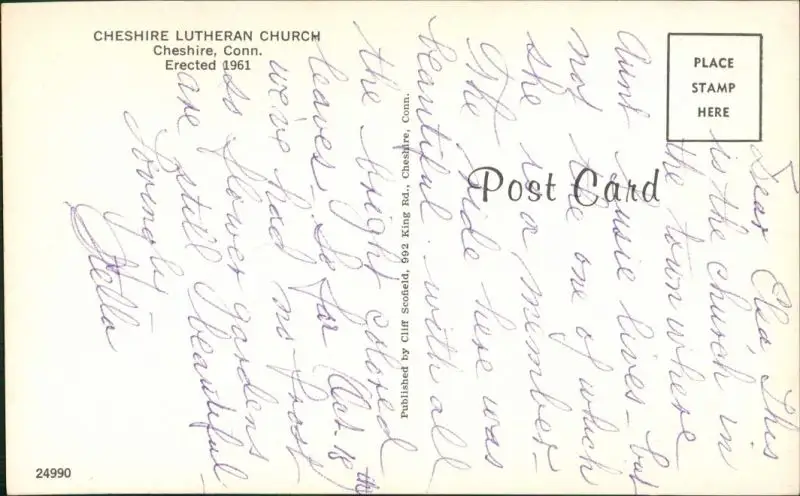 CHESHIRE LUTHERAN CHURCH
Cheshire, Conn.
Erected 1961
PLACE
STAMP
HERE
Post Card
Published by Cliff Scofield, 992 King Rd., Cheshire, Conn.
24990
Dear Elsa, This
is the church in
the town where
Aunt Susie lives - but
not the one of which
she is a member -
The ride here was
beautiful - with all
the bright colored
leaves. So far Oct. 18th
we've had no frost
so flower gardens
are still beautiful -
Lovingly
Stella